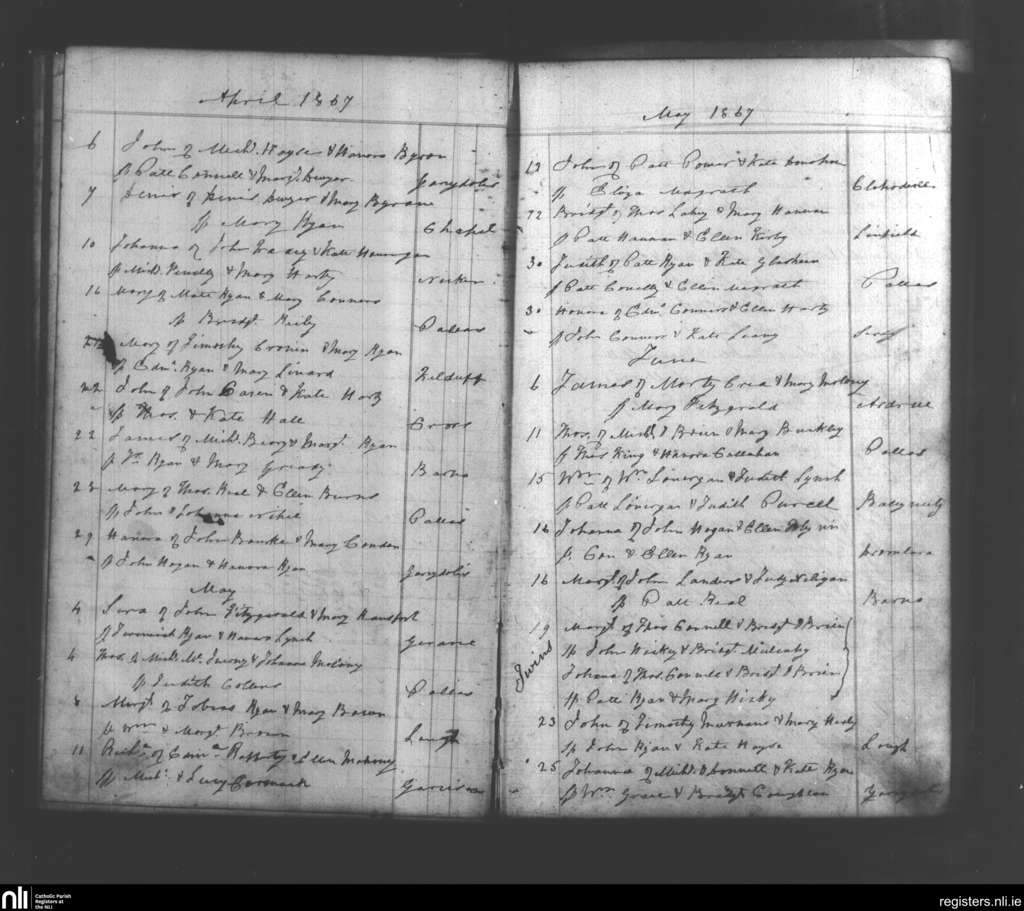 April 1867
6 John of Michl. Hayes & Honora Byron
sp Patt Connell & Margt. Dwyer Garydolis
7 Denis of Denis Dwyer & Mary Byrane
sp Mary Ryan Chapel
10 Johanna of John & Kate
sp Michl. & Mary Harty
16 Mary of Matt Ryan & Mary Connors
sp Bridgt. Pallas
22 Mary of Timothy Cronin & Mary Ryan
sp Edmd. Ryan & Mary Linard Kilduff
22 John of John & Kate Harty
sp Thos. & Kate Hall Cross
22 James of Michl. & Margt. Ryan
sp Ryan & Mary Barna
23 Mary of Thos. Real & Ellen Burns
sp John & Johanna Pallas
29 Hanora of John Bourke & Mary Condon
sp John Hogan & Hanora Ryan Garydolis
May
4 Sara of John Fitzgerald & Mary Hansfort
sp Jeremiah Ryan & Honora Lynch
4 Thos. of Michl. & Johanna Molony
sp Judith Collins Pallas
8 Margt. of Tobias Ryan & Mary
sp Wm. & Margt. Lough
11 of Rafferty & Ellen Mahony
sp Michl. & Lucy Cormack
May 1867
12 John of Patt Power & Kate Donohue
sp Eliza Magrath
12 Bridgt. of Thos Lahy & Mary Hannan
sp Patt Hannan & Ellen Kirby Linfield
30 Judith of Patt Ryan & Kate Glasheen
sp Patt Connelly & Ellen Magrath Pallas
30 Honora of Edmd. Connors & Ellen Harty
sp John Connors & Kate Leamy
June
6 James of Morty Crea & Mary Molony
sp Mary Fitzgerald
11 Thos. of Michl. O Brien & Mary Buckley
sp Thos King & Hanora Callahan Pallas
15 Wm. of Wm. Lonergan & Judith Lynch
sp Patt Lonergan & Judith Purcell
16 Johanna of John Hogan & Ellen
sp. Con & Ellen Ryan Dromlara
16 Margt. of John Landers & Judy
sp Patt Real Barna
Twins
19 Margt. of Thos Connell & Bridgt. O Brien
sp John Hicky & Bridgt. Mulcahy
Johana of Thos. Connell & Bridgt. O Brien
sp Patt Ryan & Mary Hicky
23 John of Timothy Murnane & Mary Harty
sp John Ryan & Kate Hayes Lough
25 Johanna of Michl. O Connell & Kate Ryan
sp Wm. Grace & Bridgt. Coughlan Garydolis
nli Catholic Parish
Registers at
the NLI
registers.nli.ie